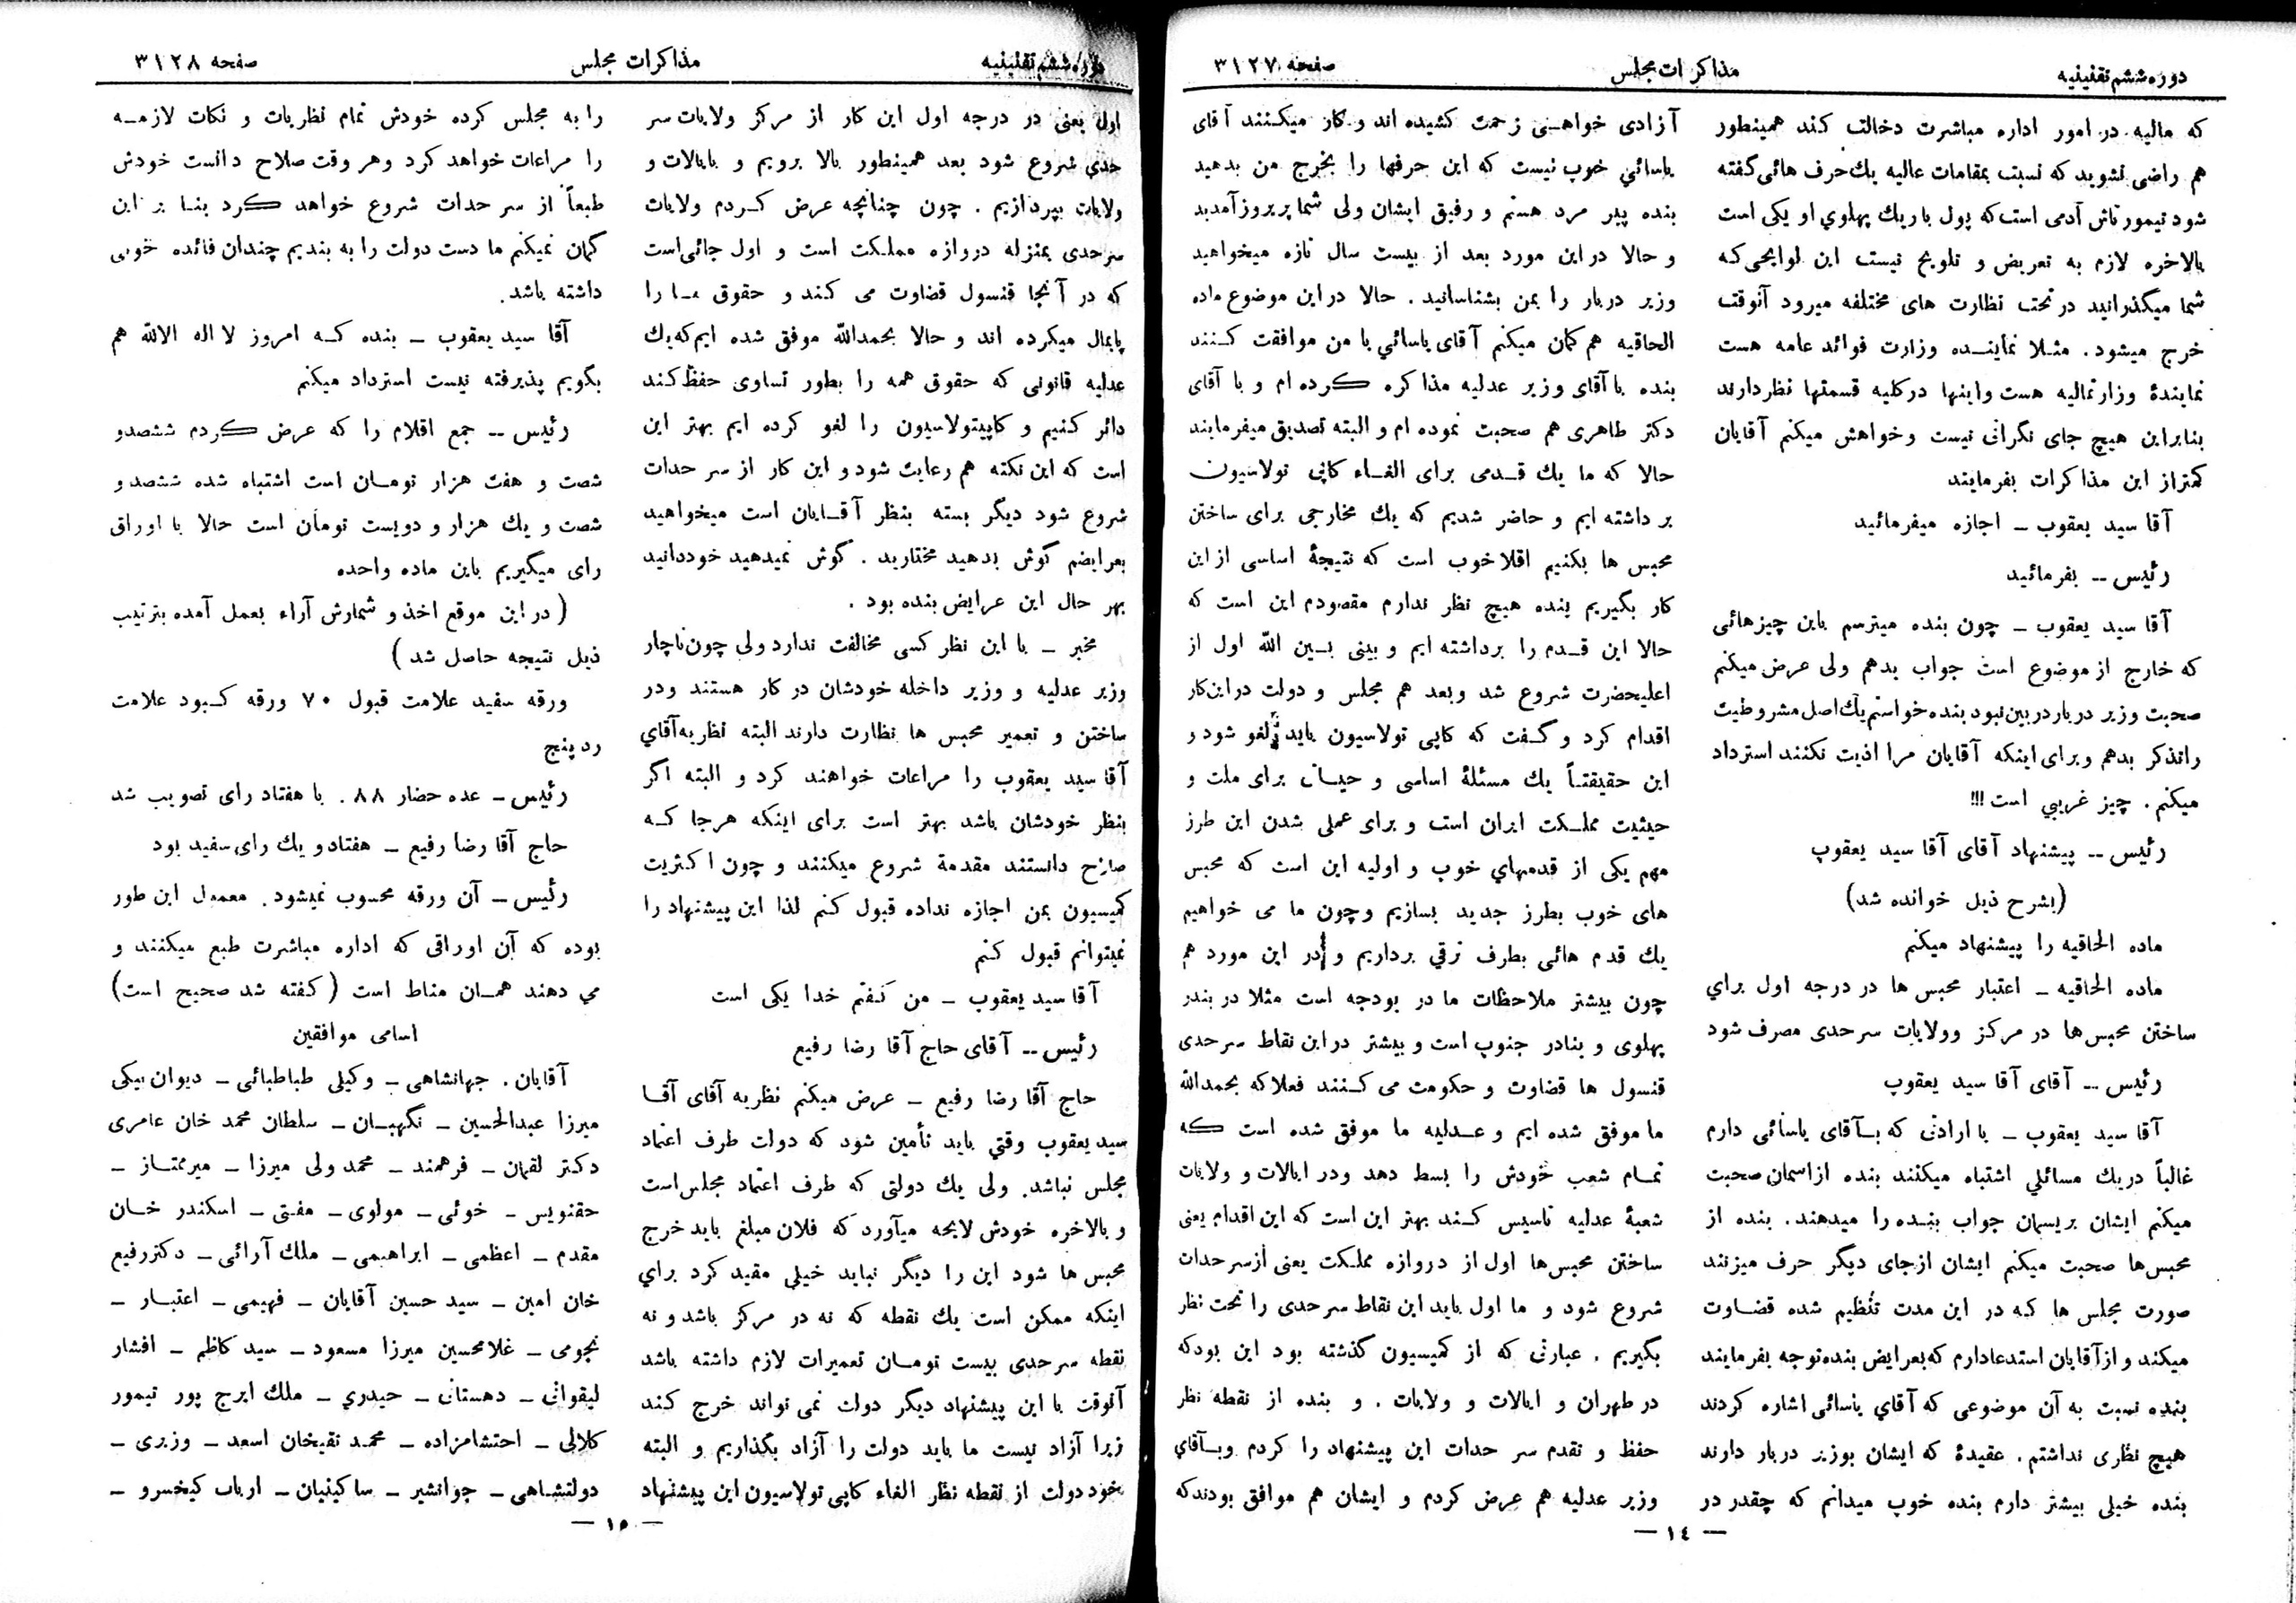 دوره ششم تقنینیه
مذاکرات مجلس
صفحه ۳۱۲۷
که مالیه در امور اداره مباشرت دخالت کند همینطور
هم راضی نشوید که نسبت بمقامات عالیه یك حرف هائی گفته
شود تیمورتاش آدمی است که پول با ریك پهلوي او یکی است
بالاخره لازم به تعریض و تلویح نیست این لوایحی که
شما میگذرانید در تحت نظارت های مختلفه میرود آنوقت
خرج میشود . مثلا نماینده وزارت فوائد عامه هست
نمایندۀ وزارتمالیه هست و اینها در کلیه قسمتها نظر دارند
بنابراین هیچ جای نگرانی نیست و خواهش میکنم آقایان
کمتر از این مذاکرات بفرمایند
آقا سید یعقوب ـ اجازه میفرمائید
رئیس -- بفرمائید
آقا سید یعقوب ـ چون بنده میترسم باین چیزهائی
که خارج از موضوع است جواب بدهم ولی عرض میکنم
صحبت وزیر دربار در بین نبود بنده خواستم یك اصل مشروطیت
را تذکر بدهم و برای اینکه آقایان مرا اذیت نکنند استرداد
میکنم . چیز غریبي است !!!
رئیس -- پیشنهاد آقای آقا سید یعقوب
(بشرح ذیل خوانده شد)
ماده الحاقیه را پیشنهاد میکنم
ماده الحاقیه ـ اعتبار محبس ها در درجه اول براي
ساختن محبس‌ها در مرکز و ولایات سرحدی مصرف شود
رئیس -- آقای آقا سید یعقوب
آقا سید یعقوب ـ با ارادتی که بـآقای یاسائی دارم
غالباً در یك مسائلي اشتباه میکنند بنده از اسمان صحبت
میکنم ایشان بریسمان جواب بنـده را میدهند . بنده از
محبس‌ها صحبت میکنم ایشان از جای دیگر حرف میزنند
صورت مجلس ها که در این مدت تنظیم شده قضـاوت
میکند و از آقایان استدعا دارم که بعرایض بنده توجه بفرمایند
بنده نسبت به آن موضوعی که آقاي یاسائی اشاره کردند
هیچ نظری نداشتم . عقیدۀ که ایشان بوزیر دربار دارند
بنده خیلی بیشتر دارم بنده خوب میدانم که چقدر در
آزادی خواهـی زحمت کشیده اند و کار میکـنند آقای
یاسائي خوب نیست که این حرفها را بخرج من بدهید
بنده پیر مرد هستم و رفیق ایشان ولی شما پریروز آمدید
و حالا در این مورد بعد از بیست سال تازه میخواهید
وزیر دربار را بمن بشناسانید . حالا در این موضوع ماده
الحاقیه هم گمان میکنم آقای یاسائي با من موافقت کـنند
بنده با آقای وزیر عدلیه مذاکره کرده ام و با آقای
دکتر طاهری هم صحبت نموده ام و البته تصدیق میفرمایند
حالا که ما یك قـدمی برای الغـاء کاپی تولاسیون
بر داشته ایم و حاضر شدیم که یك مخارجی برای ساختن
محبس ها بکنیم اقلا خوب است که نتیجۀ اساسی از این
کار بگیریم بنده هیچ نظر ندارم مقصودم این است که
حالا این قـدم را برداشته ایم و بینی بـین الله اول از
اعلیحضرت شروع شد و بعد هم مجلس و دولت در این کار
اقدام کرد و گـفت که کاپی تولاسیون باید لغو شود و
این حقیقتـاً یك مسئلۀ اساسی و حیـاتی برای ملت و
حیثیت مملـکت ایران است و برای عملی شدن این طرز
مهم یکی از قدمهاي خوب و اولیه این است که محبس
های خوب بطرز جدید بسازیم و چون ما می خواهیم
یك قدم هائی بطرف ترقي برداریم و در این مورد هم
چون بیشتر ملاحظات ما در بودجه است مثلا در بندر
پهلوی و بنادر جنوب است و بیشتر در این نقاط سرحدی
قنسول ها قضاوت و حکومت می کـنند فعلا که بحمدالله
ما موفق شده ایم و عـدلیه ما موفق شده است که
تمـام شعب خودش را بسط دهد و در ایالات و ولایات
شعبۀ عدلیه تاسیس کـند بهتر این است که این اقدام یعنی
ساختن محبس‌ها اول از دروازه مملکت یعنی از سرحدات
شروع شود و ما اول باید این نقاط سرحدی را تحت نظر
بگیریم . عبارتی که از کمیسیون گذشته بود این بود که
در طهران و ایالات و ولایات . و بنده از نقطه نظر
حفظ و تقدم سر حدات این پیشنهاد را کردم و بـآقاي
وزیر عدلیه هم عرض کردم و ایشان هم موافق بودند که
— ١٤ —
دوره ششم تقنینیه
مذاکرات مجلس
صفحه ۳۱۲۸
اول یعنی در درجه اول این کار از مرکز ولایات سر
حدي شروع شود بعد همینطور بالا برویم و بایالات و
ولایات بپردازیم . چون چنانچه عرض کـردم ولایات
سرحدی بمنزله دروازه مملـکت است و اول جائی‌است
که در آنجا قنسول قضاوت می کـند و حقوق مـا را
پایمال میکرده اند و حالا بحمدالله موفق شده ایم که یك
عدلیه قانونی که حقوق همه را بطور تساوی حفظ کند
دائر کـنیم و کاپیتولاسیون را لغو کرده ایم بهتر این
است که این نکته هم رعایت شود و این کار از سر حدات
شروع شود دیگر بسته بنظر آقـایان است میخواهید
بعرایضم گوش بدهید مختارید . گوش نمیدهید خود دانید
بهر حال این عرایض بنده بود .
مخبر ـ با این نظر کسی مخالفت ندارد ولی چون ناچار
وزیر عدلیه و وزیر داخله خودشان در کار هستند و در
ساختن و تعمیر محبس ها نظارت دارند البته نظریه آقاي
آقا سید یعقوب را مراعات خواهند کرد و البته اگر
بنظر خودشان باشد بهتر است برای اینکه هرجا کـه
صلاح دانستند مقدمة شروع میکنند و چون اکثریت
کمیسیون بمن اجازه نداده قبول کنم لذا این پیشنهاد را
نمیتوانم قبول کنم
آقا سید یعقوب ـ من گـفتم خدا یکی است
رئیس -- آقای حاج آقا رضا رفیع
حاج آقا رضا رفیع ـ عرض میکنم نظریه آقای آقـا
سید یعقوب وقتي باید تأمین شود که دولت طرف اعتماد
مجلس نباشد. ولی یك دولتی که طرف اعتماد مجلس است
و بالاخره خودش لایحه میآورد که فلان مبلغ باید خرج
محبس ها شود این را دیگر نباید خیلي مقید کرد براي
اینکه ممکن است یك نقطه که نه در مرکز باشد و نه
نقطه سرحدی بیست تومـان تعمیرات لازم داشته باشد
آنوقت با این پیشنهاد دیگر دولت نمی تواند خرج کند
زیرا آزاد نیست ما باید دولت را آزاد بگذاریم و البته
خود دولت از نقطه نظر الغاء کاپی تولاسیون این پیشنهاد
را به مجلس کرده خودش تمام نظریات و نکات لازمـه
را مراعات خواهد کرد و هر وقت صلاح دانست خودش
طبعاً از سر حدات شروع خواهد کرد بنـا بر این
گمان نمیکنم ما دست دولت را به بندیم چندان فائده خوبی
داشته باشد.
آقا سید یعقوب ـ بنده کـه امروز لا اله الا الله هم
بگویم پذیرفته نیست استرداد میکنم
رئیس -- جمع اقلام را که عرض کردم ششصد و
شصت و هفت هزار تومـان است اشتباه شده ششصد و
شصت و یك هزار و دویست تومان است حالا با اوراق
رای میگیریم باین ماده واحده
( در این موقع اخذ و شمارش آراء بعمل آمده بترتیب
ذیل نتیجه حاصل شد )
ورقه سفید علامت قبول ۷۰ ورقه کـبود علامت
رد پنج
رئیس ـ عده حضار ۸۸ . با هفتاد رای تصویب شد
حاج آقا رضا رفیع ـ هفتاد و یك رای سفید بود
رئیس ـ آن ورقه محسوب نمیشود . معمول این طور
بوده که آن اوراقی که اداره مباشرت طبع میکنند و
مي دهند همـان مناط است ( گفته شد صحیح است)
اسامی موافقین
آقایان . جهانشاهی ـ وکیلی طباطبائی ـ دیوان بیکی
میرزا عبدالحسین ـ نگهبـان ـ سلطان محمد خان عامری
دکتر لقمان ـ فرهمند ـ محمد ولی میرزا ـ میرممتـاز ـ
حقنویس ـ خوئی ـ مولوی ـ مفتی ـ اسکندر خـان
مقدم ـ اعظمی ـ ابراهیمی ـ ملك آرائی ـ دکتر رفیع
خان امین ـ سید حسین آقایان ـ فهیمی ـ اعتبـار ـ
نجومی ـ غلامحسین میرزا مسعود ـ سید کاظم ـ افشار
لیقوانی ـ دهستانی ـ حیدري ـ ملك ایرج پور تیمور
کلالی ـ احتشامزاده ـ محمد تقیخان اسعد ـ وزیری ـ
دولتشاهی ـ جوانشیر ـ ساکینیان ـ ارباب کیخسرو ـ
— ١٥ —